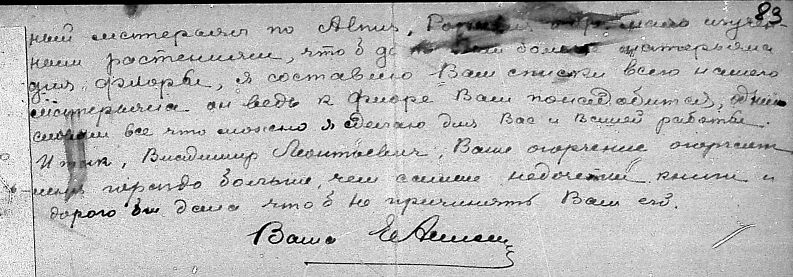 83
ный материал по Алтаю,
ными растениями, чтоб больше материала
для флоры, я составлю Вам списки всего нашего
материала он ведь к флоре Вам понадобится, одним
словом все что можно я сделаю для Вас и Вашей работы.
Итак, Владимир Леонтьевич, Ваше огорчение огорчает
меня гораздо больше, чем самые недочеты книги и
дорого бы дала чтоб не причинять Вам его.
Ваша